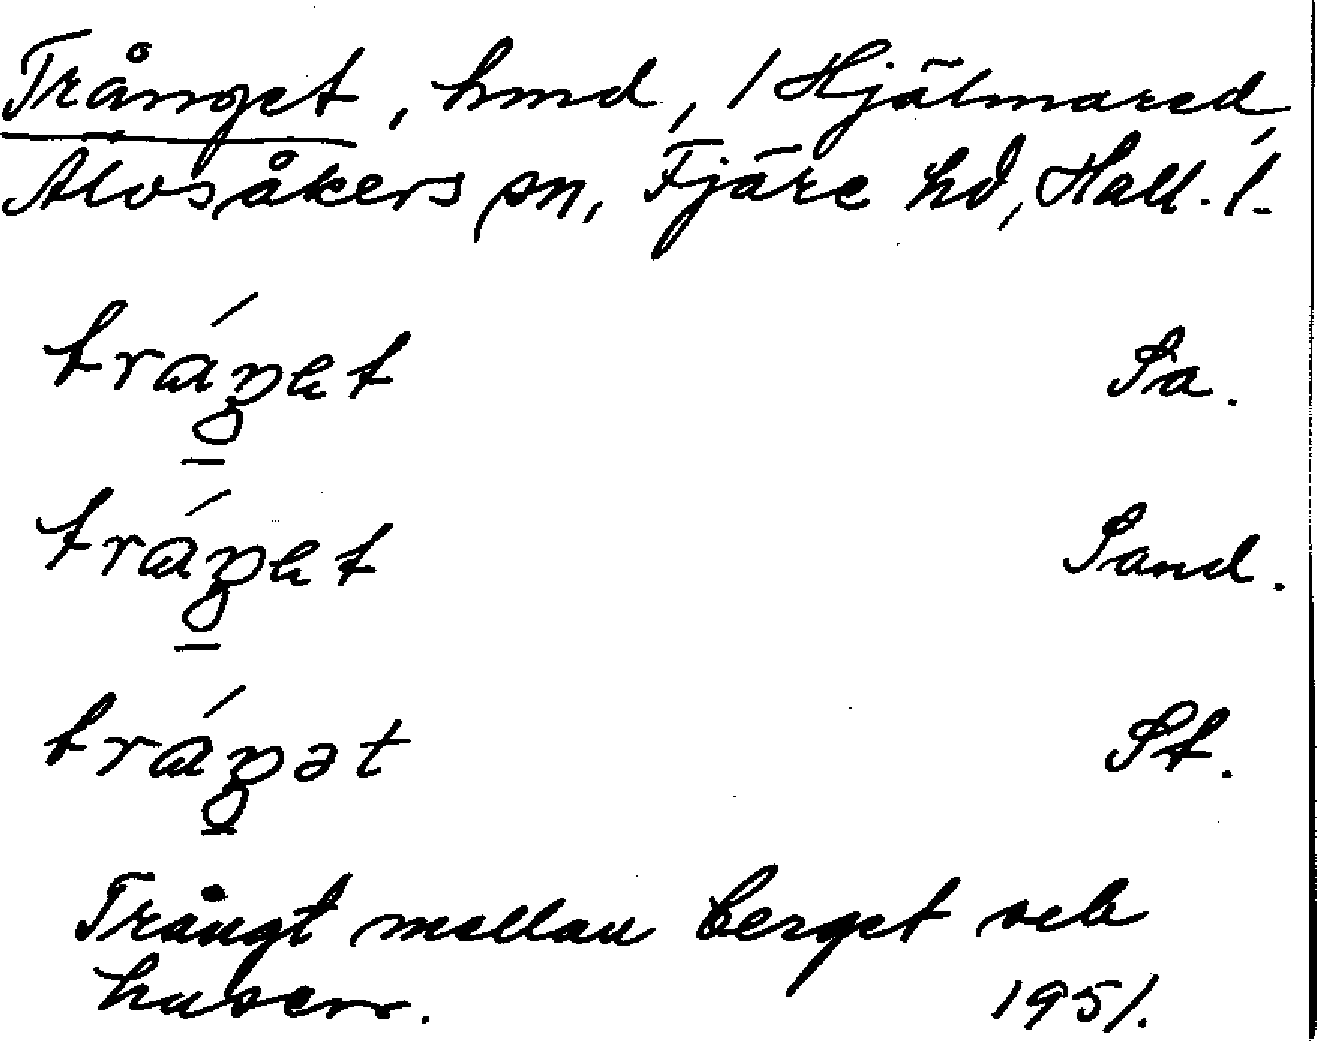 Trånget, hmd, i Hjälmared,
Älvsåkers sn, Fjäre hd, Hall. l.
tráŋet Sa.
tráŋet Sand.
tráŋət St.
Trångt mellan berget och
husen. 1951.